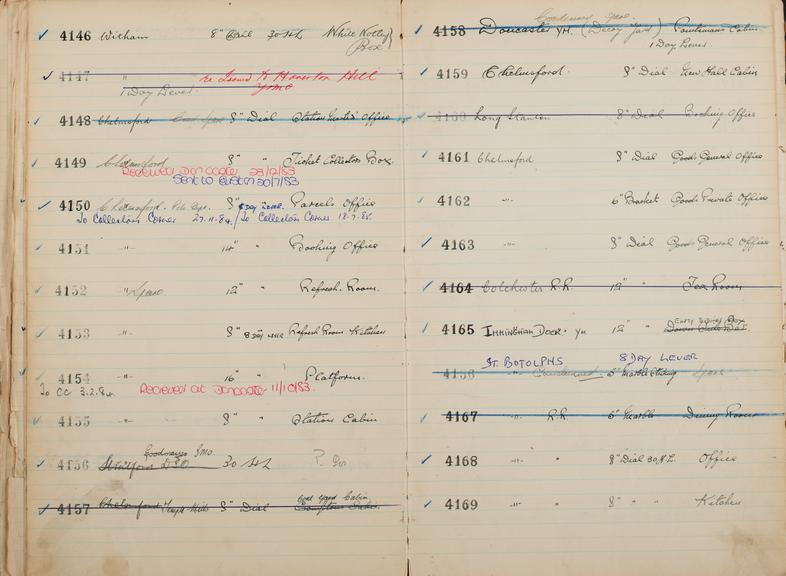 4146 Witham 8" 30 Hr White Notley
Box
4147 " re Issued to Haverton Hill
1 Day Lever
4148 Chelmsford 8" Dial Station Master's Office
4149 Chelmsford 8" " Ticket Collectors Box.
Received Doncaster 28/12/83
Sent to Euston 30/7/83
4150 Chelmsford. 8" 8 Day Lever Parcels Office
To Collectors Corner 27.11.84 / To Collectors Corner 18.7.85.
4151 " 14" " Booking Office
4152 " Spare 12" " Refresh. Room.
4153 " 8" 8 Day Refresh Room Kitchen
4154 " 16" " Platform.
To CC 3.2.84 Received at Doncaster 11/10/83.
4155 " 8" " Station Cabin
Goodmayes
4156 Stratford 30 Hr
4157 Chelmsford Temple Mills 8" Dial Cabin.
Condemned
4158 Doncaster YH. (Decoy Yard) Cabin
1 Day Lever
4159 Chelmsford. 8" Dial New Hall Cabin
4160 Long Stanton 8" Dial Booking Office
4161 Chelmsford 8" Dial Goods General Office
4162 " 6" Bracket Goods Private Office
4163 " 8" Dial Goods General Office
4164 Colchester R.R. 12" " Tea Room
4165 Immingham Dock. YH 12" " Box
St. Botolphs 8 Day Lever
4166 " Condemned 6" Marble Spare
4167 " R.R. 6" Marble Dining Room
4168 " " 8" Dial 30 H.L. Office
4169 " " 8" " " Kitchen